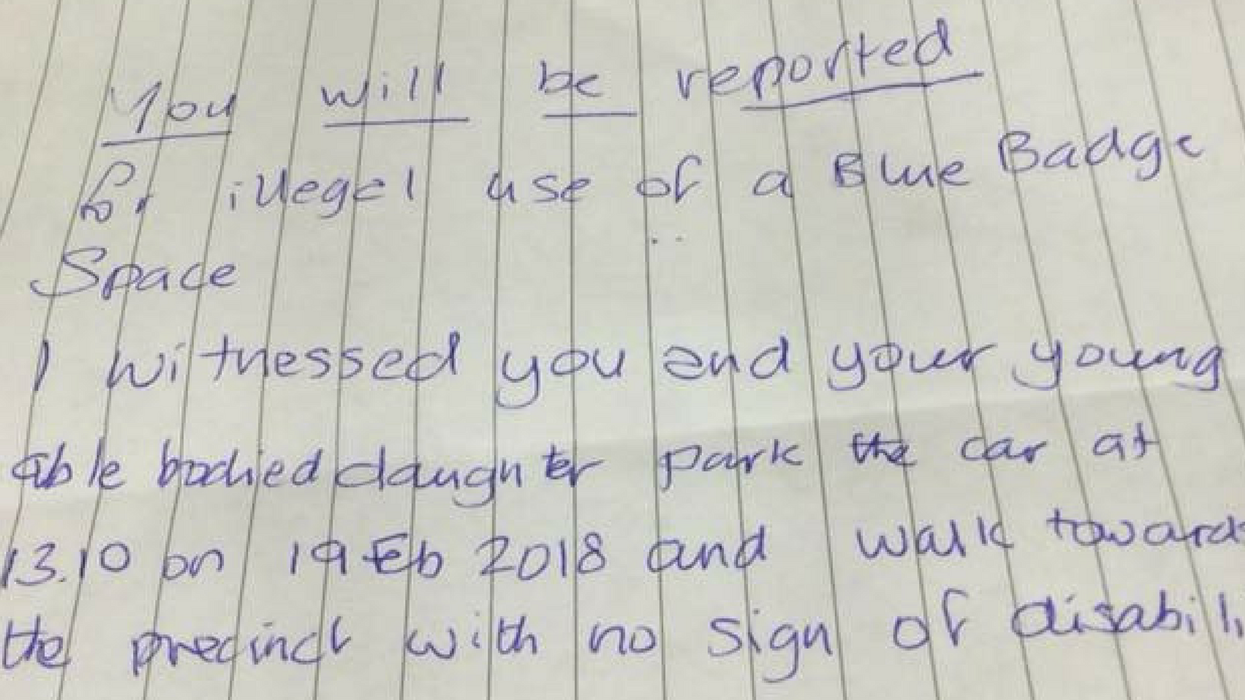 You will be reported
for illegel use of a Blue Badge
Space
I witnessed you and your young
able bodied daughter park the car at
13.10 on 19 Feb 2018 and walk toward
the precinct with no sign of disabili